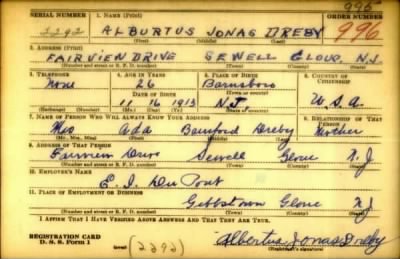 995
SERIAL NUMBER 1. NAME (Print) ORDER NUMBER
2292 ALBURTUS JONAS DREBY 996
(First) (Middle) (Last)
2. ADDRESS (Print)
FAIRVIEW DRIVE SEWELL GLOUC. N.J.
(Number and street or R. F. D. number) (Town) (County) (State)
3. TELEPHONE 4. AGE IN YEARS 5. PLACE OF BIRTH 6. COUNTRY OF CITIZENSHIP
None 26 Barnsboro
DATE OF BIRTH (Town or county)
11 16 1913 N.J. U.S.A.
(Exchange) (Number) (Mo.) (Day) (Yr.) (State or country)
7. NAME OF PERSON WHO WILL ALWAYS KNOW YOUR ADDRESS 8. RELATIONSHIP OF THAT PERSON
Mrs Ada Bamford Dreby Mother
(Mr., Mrs., Miss) (First) (Middle) (Last)
9. ADDRESS OF THAT PERSON
Fairview Drive Sewell Glouc N.J.
(Number and street or R. F. D. number) (Town) (County) (State)
10. EMPLOYER'S NAME
E. I. Du Pont
11. PLACE OF EMPLOYMENT OR BUSINESS
Gibbstown Glouc NJ
(Number and street or R. F. D. number) (Town) (County) (State)
I AFFIRM THAT I HAVE VERIFIED ABOVE ANSWERS AND THAT THEY ARE TRUE.
REGISTRATION CARD
D. S. S. Form 1 (over) (2292) Albertus Jonas Dreby
(Registrant's signature)